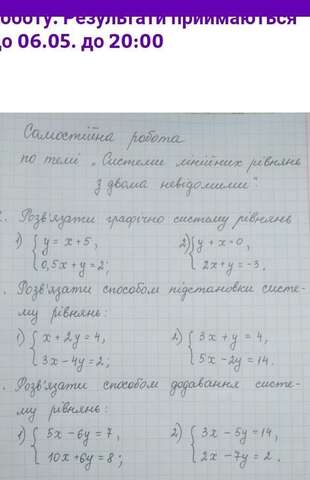 боту. Результати приймаються
до 06.05. до 20:00
Самостійна робота
по темі „Системи лінійних рівнянь
з двома невідомими".
1. Розв'язати графічно систему рівнянь
1) { y = x + 5, 2) { y + x = 0,
0,5x + y = 2; 2x + y = -3.
. Розв'язати способом підстановки систе-
му рівнянь:
1) { x + 2y = 4, 2) { 3x + y = 4,
3x - 4y = 2; 5x - 2y = 14.
. Розв'язати способом додавання систе-
му рівнянь:
1) { 5x - 6y = 7, 2) { 3x - 5y = 14,
10x + 6y = 8; 2x - 7y = 2.